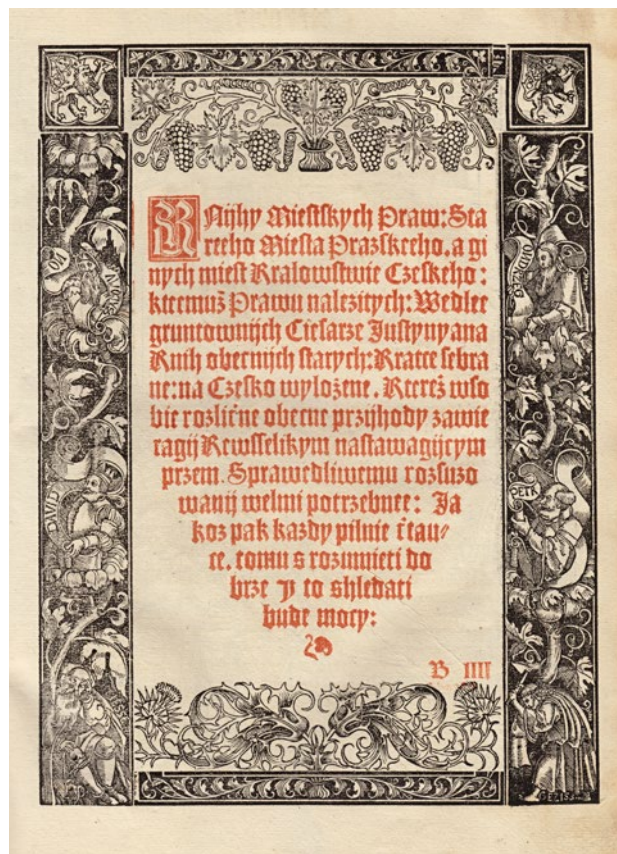 Knijhy Miestskych Praw: Sta
reeho Miesta Prazskeeho. a gi
nych miest Kralowstwie Czeskeho:
kteemuž Prawu nalezitych: Wedlee
gruntownijch Ciesarze Justynyana
Knih obecnijch starych: Kratce sebra
ne: na Czesko wylozene. Kterež wso
bie rozlične obecne przijhody zawie
ragij Kewsselikym nastawagijcym
przem. Sprawedliwemu rozsuzo
wanij welmi potrzebnee: Ja
koz pak kazdy pilnie čtau⸗
ce. tomu s rozumieti do
brze y to shledati
bude mocy:
B IIII
DAVID
PETR